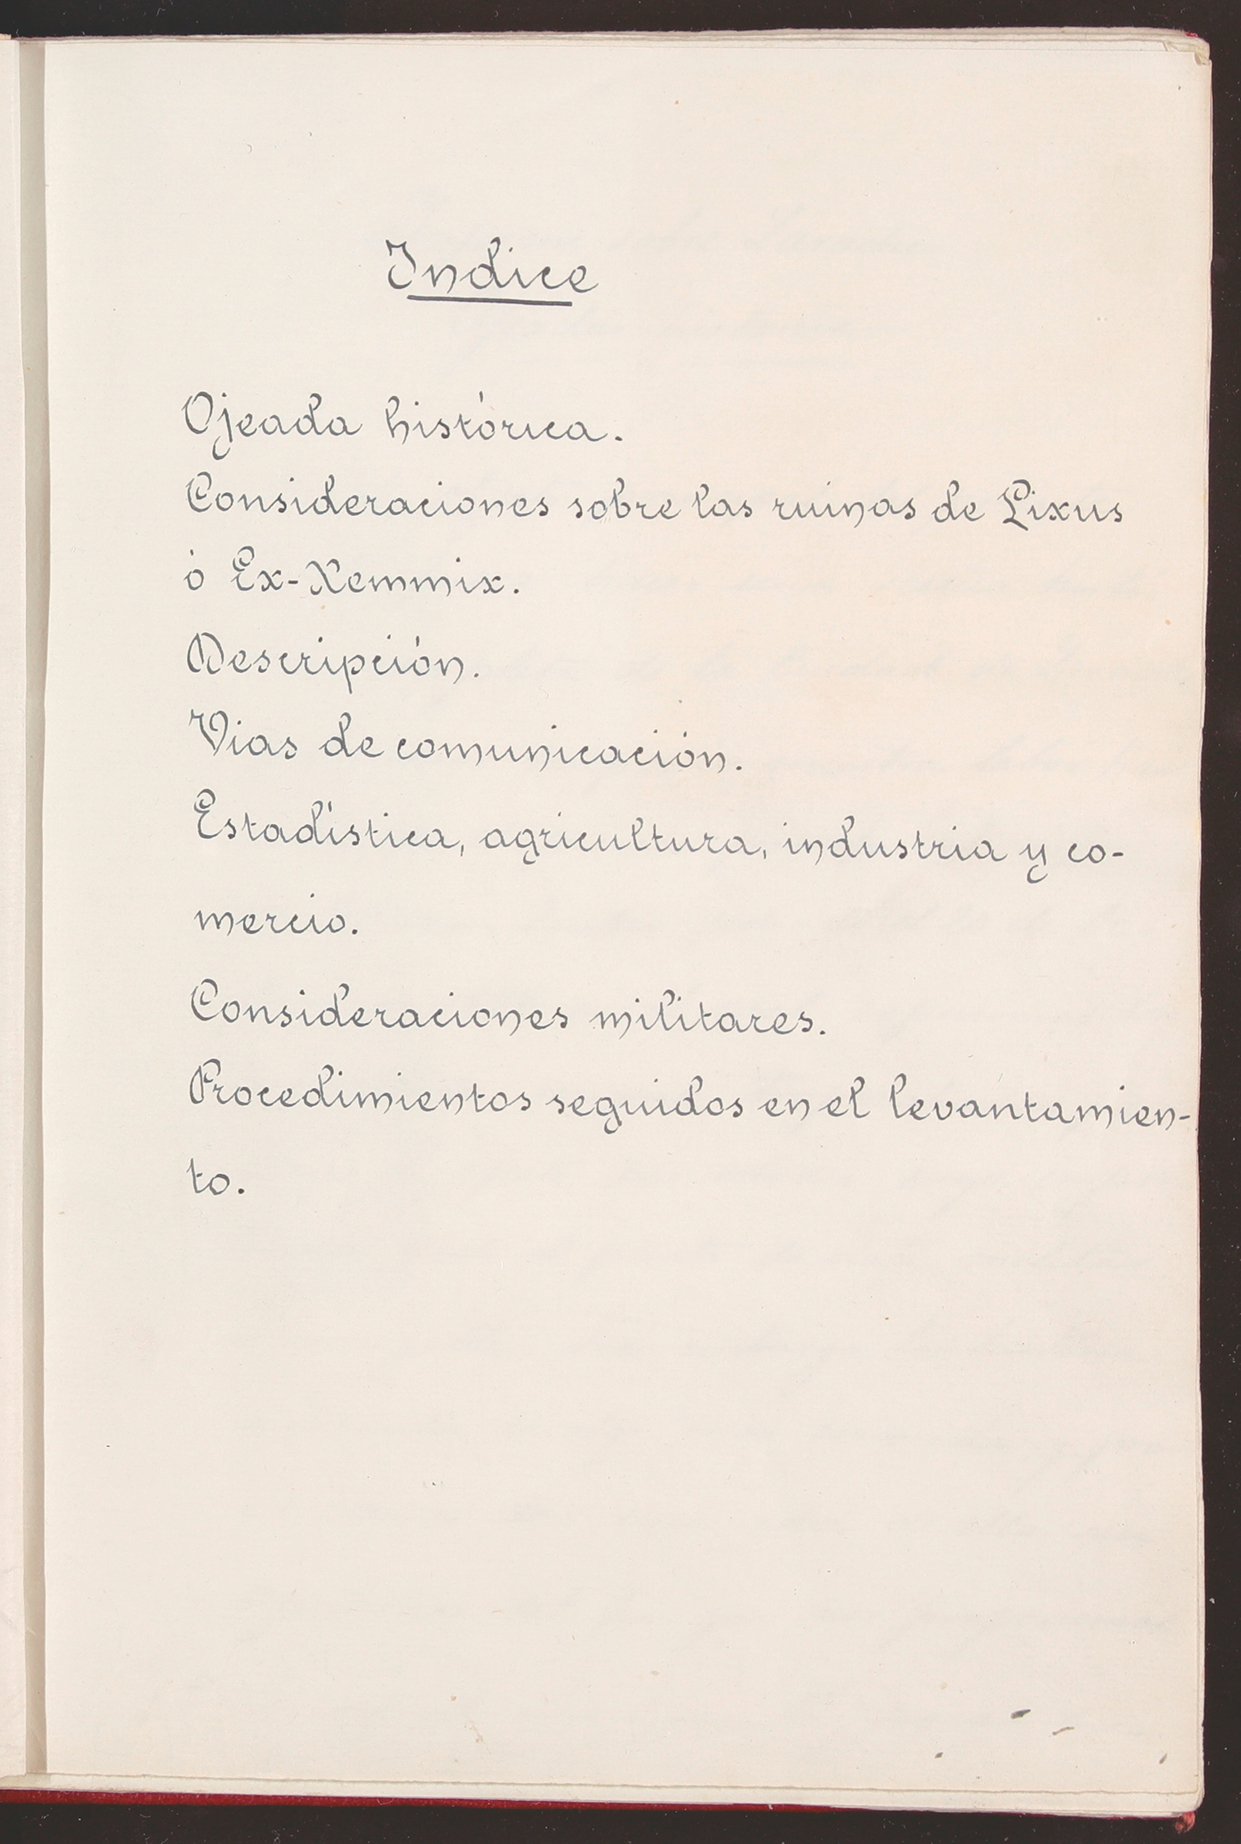 Indice
Ojeada histórica.
Consideraciones sobre las ruinas de Lixus
ó Ex-Xemmix.
Descripción.
Vias de comunicación.
Estadística, agricultura, industria y co-
mercio.
Consideraciones militares.
Procedimientos seguidos en el levantamien-
to.